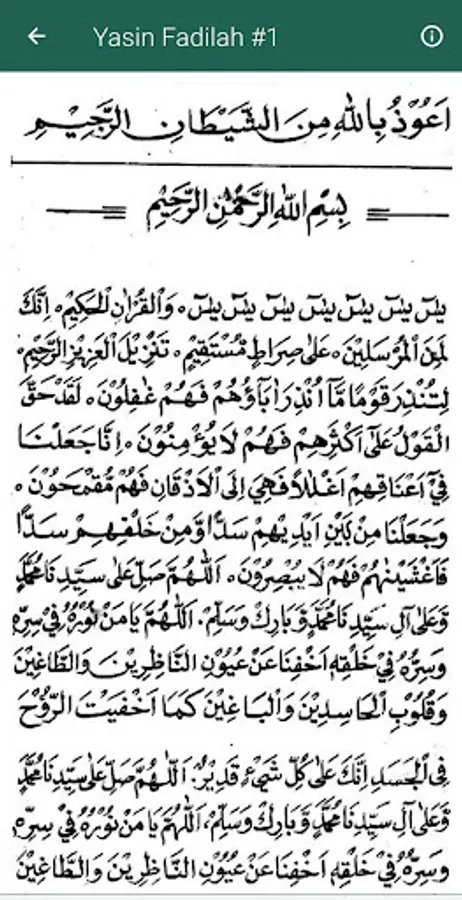 Yasin Fadilah #1
اَعُوْذُ بِاللهِ مِنَ الشَّيْطَانِ الرَّجِيْمِ
بِسْمِ اللهِ الرَّحْمٰنِ الرَّحِيْمِ
يٰسٓ يٰسٓ يٰسٓ يٰسٓ يٰسٓ يٰسٓ يٰسٓ ۰ وَالْقُرْاٰنِ الْحَكِيْمِ ۰ اِنَّكَ
لَمِنَ الْمُرْسَلِيْنَ ۰ عَلٰى صِرَاطٍ مُسْتَقِيْمٍ ۰ تَنْزِيْلَ الْعَزِيْزِ الرَّحِيْمِ ۰
لِتُنْذِرَ قَوْمًا مَّآ اُنْذِرَ اٰبَاؤُهُمْ فَهُمْ غٰفِلُوْنَ ۰ لَقَدْ حَقَّ
الْقَوْلُ عَلٰٓى اَكْثَرِهِمْ فَهُمْ لَا يُؤْمِنُوْنَ ۰ اِنَّا جَعَلْنَا
فِيْٓ اَعْنَاقِهِمْ اَغْلٰلًا فَهِيَ اِلَى الْاَذْقَانِ فَهُمْ مُقْمَحُوْنَ ۰
وَجَعَلْنَا مِنْ بَيْنِ اَيْدِيْهِمْ سَدًّا وَّمِنْ خَلْفِهِمْ سَدًّا
فَاَغْشَيْنٰهُمْ فَهُمْ لَا يُبْصِرُوْنَ ۰ اَللّٰهُمَّ صَلِّ عَلٰى سَيِّدِنَا مُحَمَّدٍ
وَّعَلٰى آلِ سَيِّدِنَا مُحَمَّدٍ وَّبَارِكْ وَسَلِّمْ. اَللّٰهُمَّ يَا مَنْ نُوْرُهُ فِيْ سِرِّهِ
وَسِرُّهُ فِيْ خَلْقِهِ اَخْفِنَا عَنْ عُيُوْنِ النَّاظِرِيْنَ وَالطَّاغِيْنَ
وَقُلُوْبِ الْحَاسِدِيْنَ وَالْبَاغِيْنَ كَمَا اَخْفَيْتَ الرُّوْحَ
فِى الْجَسَدِ اِنَّكَ عَلٰى كُلِّ شَيْءٍ قَدِيْرٌ. اَللّٰهُمَّ صَلِّ عَلٰى سَيِّدِنَا مُحَمَّدٍ
وَّعَلٰى آلِ سَيِّدِنَا مُحَمَّدٍ وَّبَارِكْ وَسَلِّمْ، اَللّٰهُمَّ يَا مَنْ نُوْرُهُ فِيْ سِرِّهِ
وَسِرُّهُ فِيْ خَلْقِهِ اَخْفِنَا عَنْ عُيُوْنِ النَّاظِرِيْنَ وَالطَّاغِيْنَ